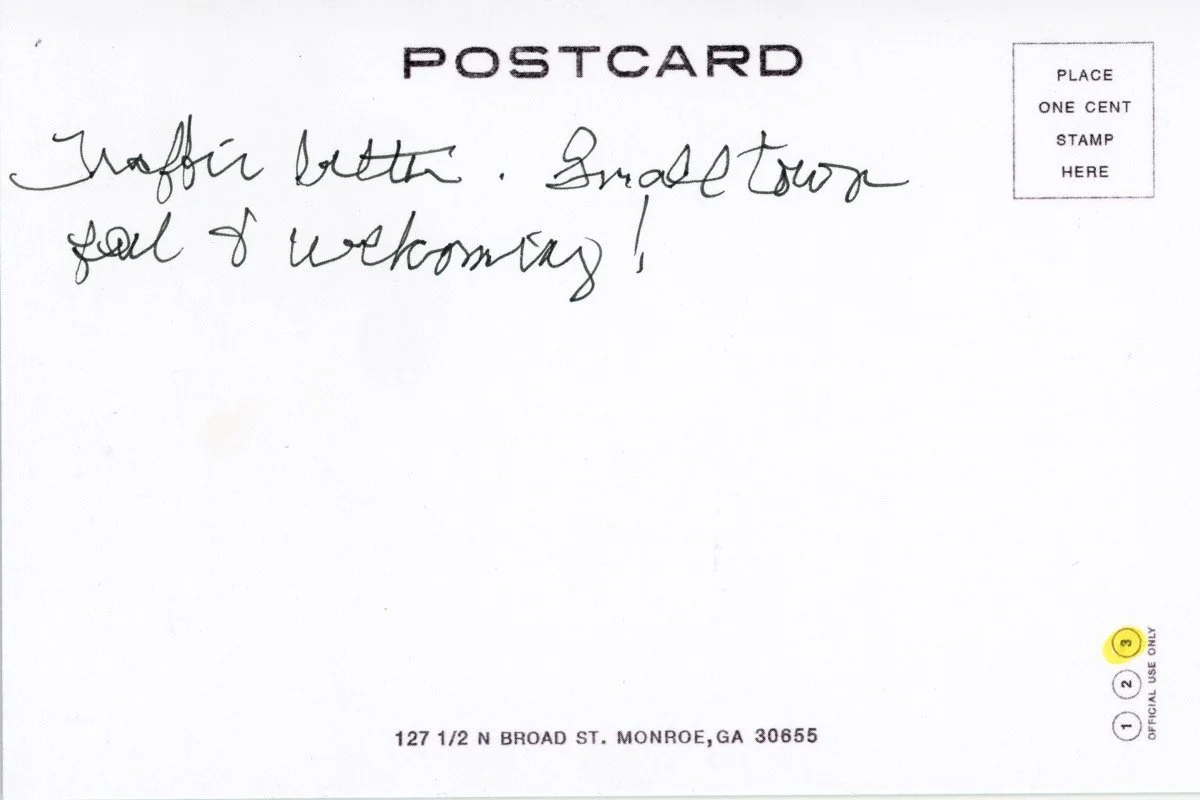 POSTCARD
PLACE
ONE CENT
STAMP
HERE
Traffic better. Small town
feel & welcoming!
127 1/2 N BROAD ST. MONROE,GA 30655
1 2 3
OFFICIAL USE ONLY